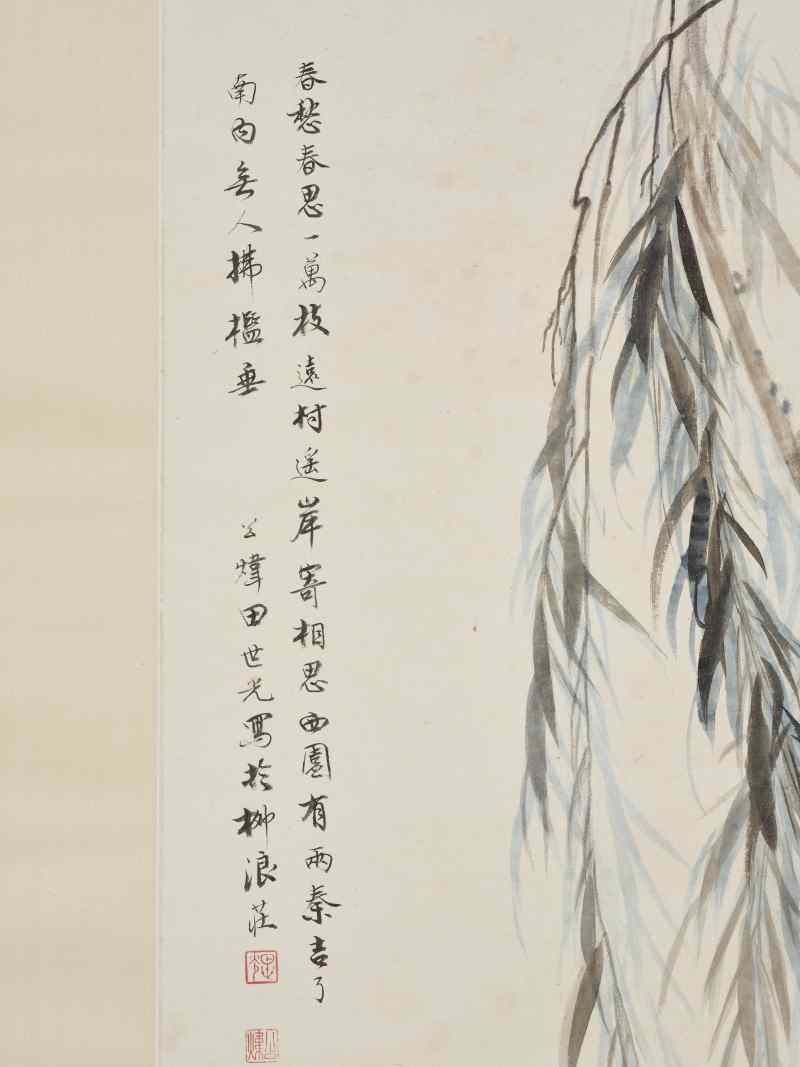 春愁春思一萬枝遠村遥岸寄相思西園有兩秦吉了
南内無人拂檻垂 公煒田世光寫於柳浪莊